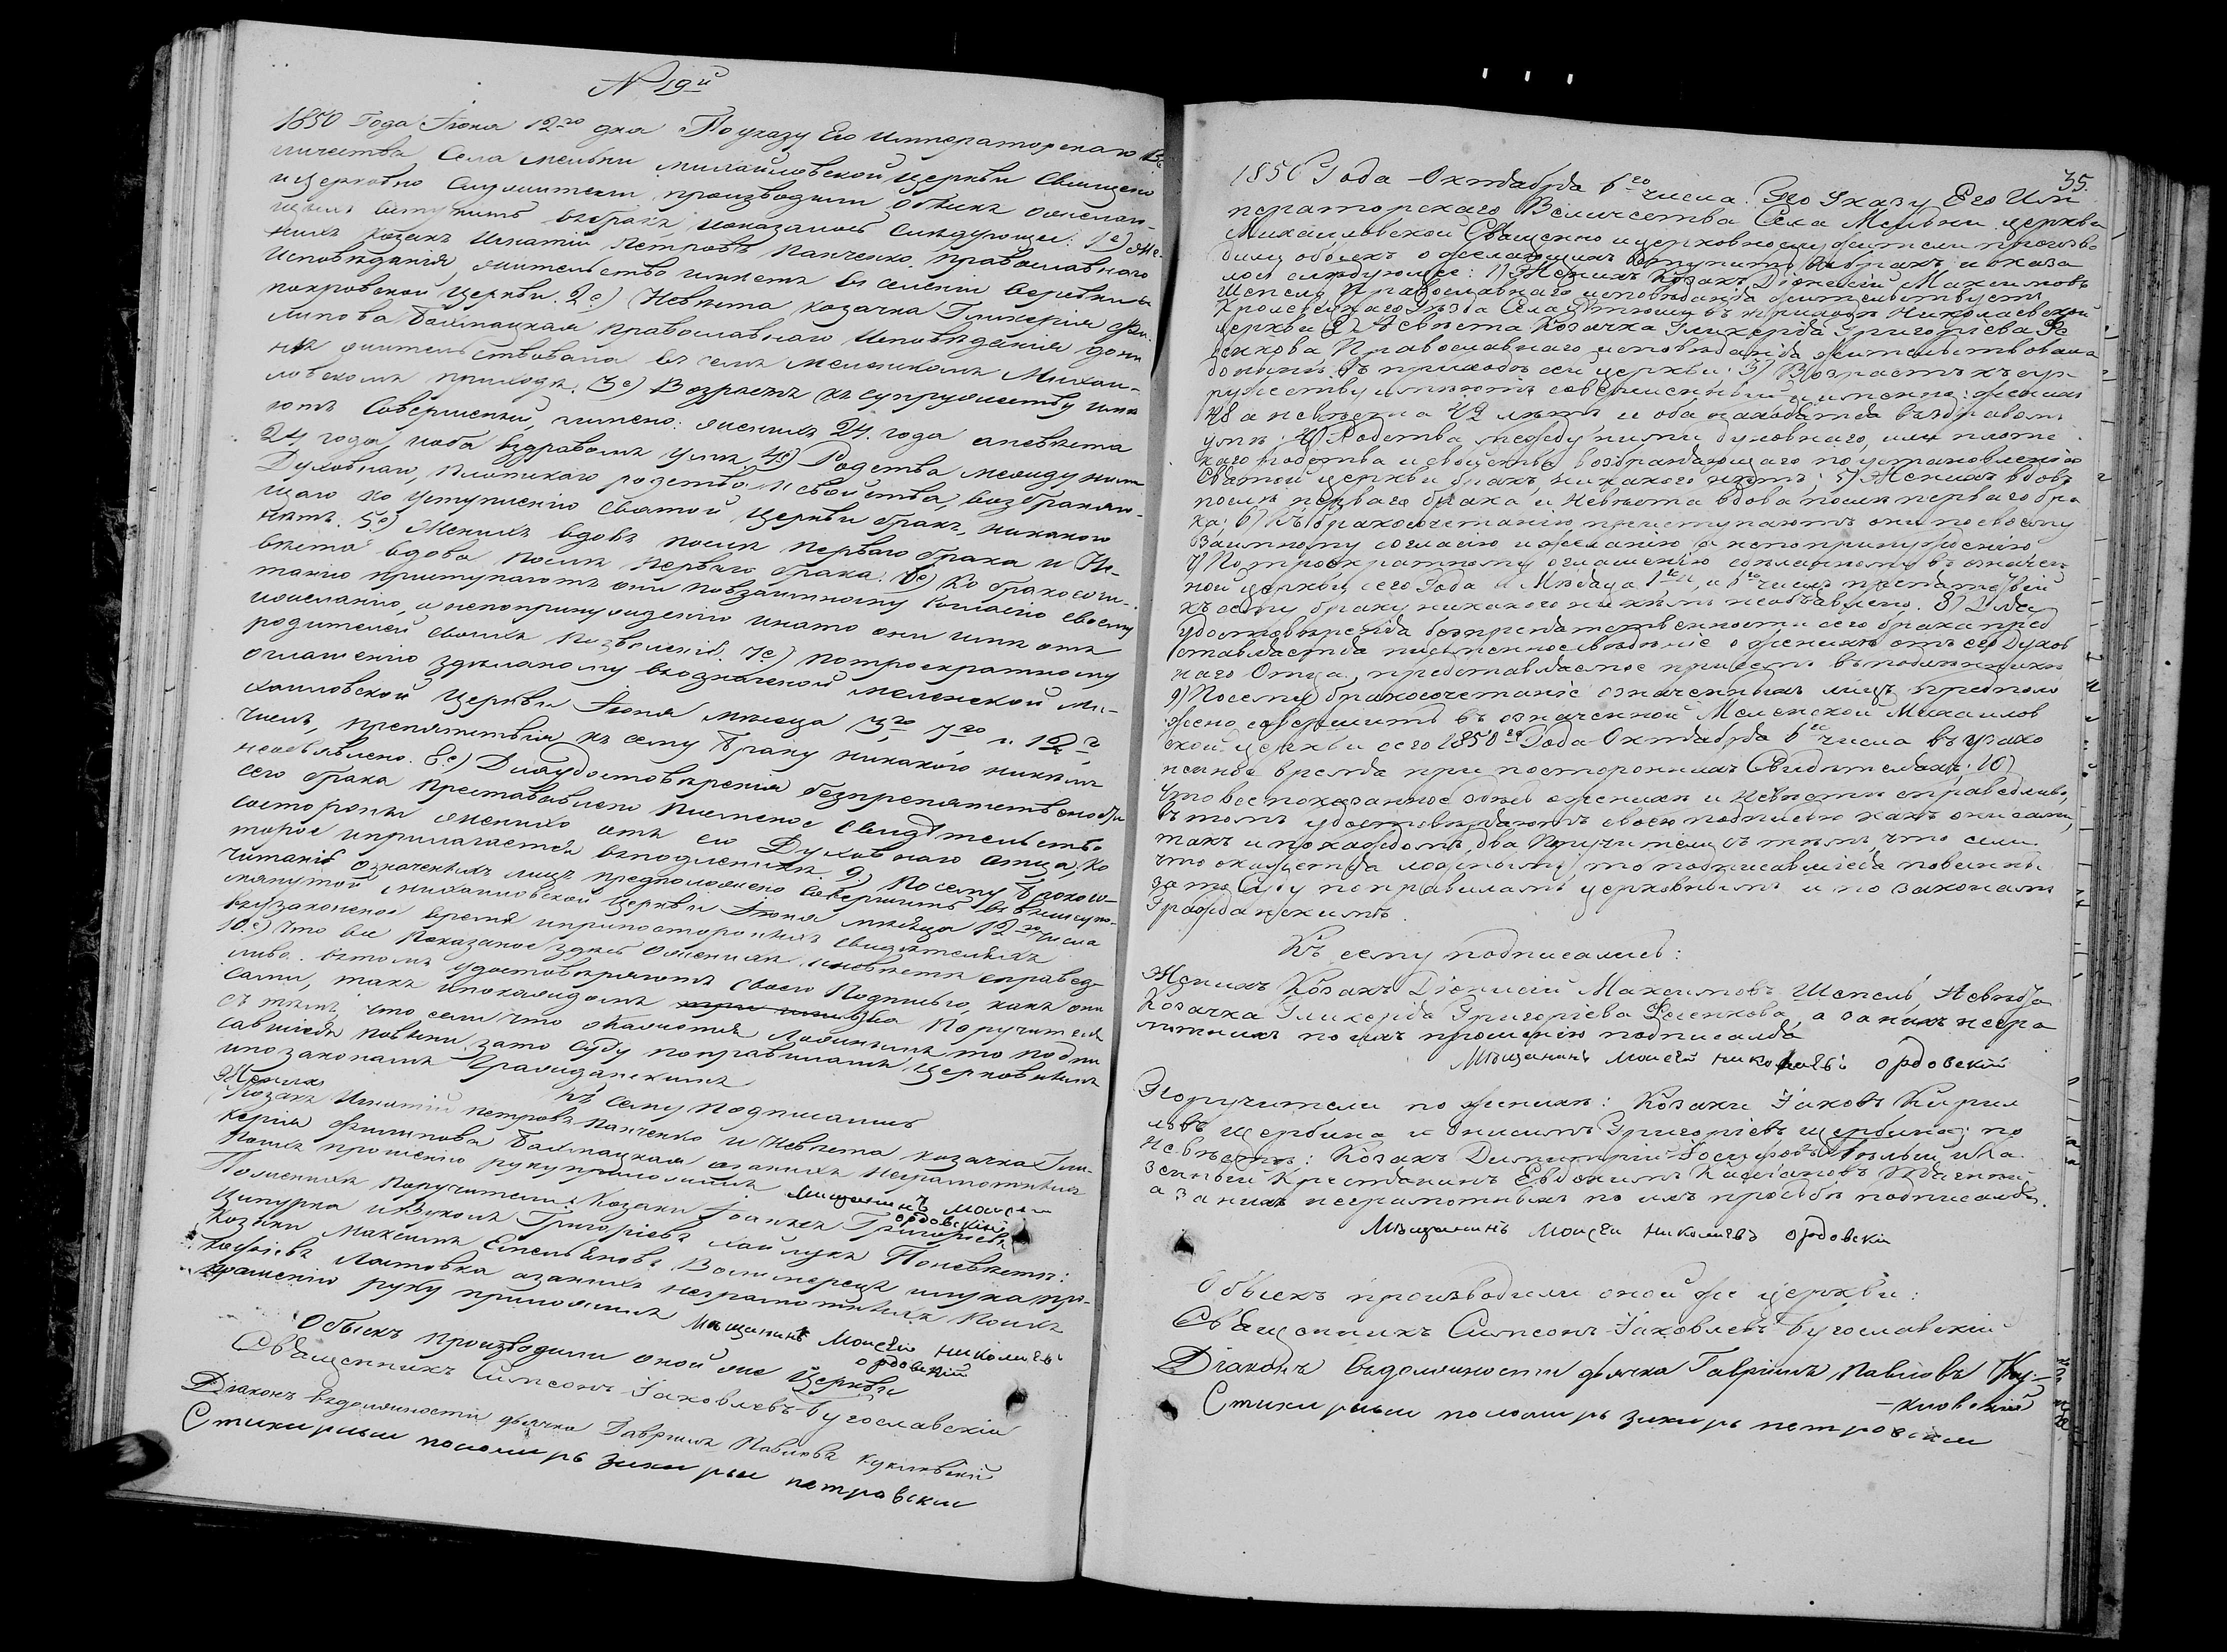 N 19й
1850 Года Июня 12го дня По указу Его Императорскаго Ве
личества Села Мельни Михаиловской Церкви Священо
и Церковно Служители производили Обыскъ о желаю-
щихъ вступить въ бракъ, и оказалось Слѣдующее: 1е) Же-
нихъ козакъ Игнатій Петровъ Панченко, православнаго
Исповѣданія, жительство имѣетъ въ селеніи
покровской Церкви. 2е) Невѣста козачка Гликерія Фи-
липова Бахмацкая православнаго Исповѣданія доны
нѣ жительствовала въ селѣ Мельникахъ Михаи-
ловскомъ приходѣ. 3е) Возрастъ къ супружеству имѣ
ютъ Совершеный, имено: женихъ 24. года а невѣста
24 года, и оба въ здравомъ умѣ. 4е) Родства между ними
Духовнаго, плотскаго родства и свойства, возбраняю-
щаго по уступленію Святой Церкви бракъ, никакого
нѣтъ. 5е) Женихъ вдовъ послѣ перваго брака и Не-
вѣста вдова послѣ перваго брака. 6е) Ко бракосоче-
танію приступаютъ они по взаимному согласію своему
и желанію, а не по принужденію и на то они имѣютъ
родителей своихъ позволеніе. 7е) По троекратному
оглашенію здѣланому въ означеной Меленской Ми-
хаиловской Церкви Июня мѣсяца 3го, 7го и 12го
чиселъ, препятствія къ сему браку никакого никѣмъ
необъявлено. 8е) Для удостовѣренія безпрепятствености
сего брака представлено писменое свидѣтельство
со стороны жениха отъ его Духовнаго Отца, ко
торое и прилагается въ подлиникѣ. 9.) По сему бракосо-
читаніе означенныхъ лицъ предположено совершить въ вышеупо-
мянутой Михаиловской Церкви Июня мѣсяца 12го числа
въ узаконеное время и при постороннихъ свидѣтеляхъ
10.е) Что все показаное здѣсь о женихѣ и невѣстѣ справед-
ливо. въ томъ удостовѣряютъ своею подписью, какъ они
сами, такъ и по каждомъ два Поручителя
съ тѣмъ, что если что окажется ложнымъ то подпи
савшіеся повины за то суду по правиламъ Церковнымъ
и по законамъ Гражданскимъ
Къ сему подписались
Женихъ
Козакъ Игнатій Петровъ Панченко и Невѣста козачка Гли-
керія Филипова Бахмацкая а за нихъ неграмотныхъ
по ихъ прошенію руку приложилъ Мищанинъ Моисеи
ордовскій
По женихѣ Поручители Козаки Іоаннъ Григорьевъ
Ципурка и Григоріевъ Хайлукъ По невѣстѣ:
Козаки Максимъ Емельяновъ и Лука Про-
кофіевъ Лаптовка а за нихъ неграмотныхъ по ихъ
прошенію руку приложилъ Мѣщанинъ Моисей Николаевъ
ордовскій
Обыскъ производили оной же Церкви
Священникъ Симеонъ Іаковлевъ Бугославскій
Діаконъ въ должности дьячка Гавріилъ Павловъ Кукловскій
Стихирный пономарь Захарыи петровскии

35.
1850 Года Октября 6го числа. По Указу Его Им
ператорскаго Величества Села Мельни церкви
Михаиловской Священно и церковнослужители произво
дили обыскъ о желающихъ вступить въ бракъ и оказа
лось слѣдующее: 1) Женихъ Козакъ Діонисій Максимовъ
Шепель, Православнаго исповѣданія жительствуетъ
Кролевецкаго Уѣзда Села въ приходѣ Николаевской
церкви 2) Невѣста Козачка Гликерія Григоріева Фе
сенкова, Православнаго исповѣданія жительствовала
донынѣ въ приходѣ сей церкви: 3) Возрастъ къ суп
ружеству имѣютъ совершенный и именно: женихъ
48 а невѣста 42 лѣтъ и оба находятся въ здравомъ
умѣ: 4) Родства между ними духовнаго, или плотс
каго родства и свойства возбраняющаго по установленію
Святой церкви бракъ, никакого нѣтъ; 5) Женихъ вдовъ
послѣ перваго брака, и Невѣста вдова послѣ перваго бра
ка: 6) Къ бракосочетанію приступаютъ они по своему
взаимному согласію и желанію а не по принужденію
7) По троекратному оглашенію сдѣланному въ означен
ной церкви сего Года и Мѣсяца 1го и 6го чиселъ препятствій
къ сему браку никакого никѣмъ необъявлено. 8) Для
удостовѣренія безпрепятственности сего брака пред
ставляется писменное свѣдѣніе о женихѣ отъ его Духов
наго Отца, представляемое при семъ въ подлинникѣ
9) Посему бракосочетаніе означенныхъ лицъ предполо
жено совершить въ означенной Меленской Михаилов
ской церкви сего 1850го Года Октября 6го числа въ узако
ненное время при постороннихъ Свидѣтеляхъ: 10)
Что все показанное здѣсь о женихѣ и Невѣстѣ справедливо,
въ томъ удостовѣряютъ своею подписью какъ они сами,
такъ и по каждомъ два Поручителя съ тѣмъ, что если
что окажется ложнымъ, то подписавшіеся повинны
за то Суду по правиламъ церковнымъ и по законамъ
Гражданскимъ.
Къ сему подписались:
Женихъ Козакъ Діонисій Максимовъ Шепель, Невѣста
Козачка Гликерія Григоріева Фесенкова, а за нихъ негра
мотныхъ по ихъ прошенію подписался
Мѣщанинъ Моисей Николаевъ ордовскій
Поручители по женихѣ: Козаки Іаковъ Кирил
ловъ Щербина и Онисимъ Григоріевъ Щербина; по
Невѣстѣ: Козакъ Димитрій Іосифовъ и Ка
зенный Крестьянинъ Евдокимъ
а за нихъ неграмотныхъ по ихъ просьбѣ подписался.
Мѣщанинъ Моисеи Николаевъ ордовскіи
Обыскъ производили оной же церкви:
Священникъ Симеонъ Іаковлевъ Бугославскій
Діаконъ въ должности дьячка Гавріилъ Павловъ Кук-
ловскій
Стихирный пономарь Захарь петровскии